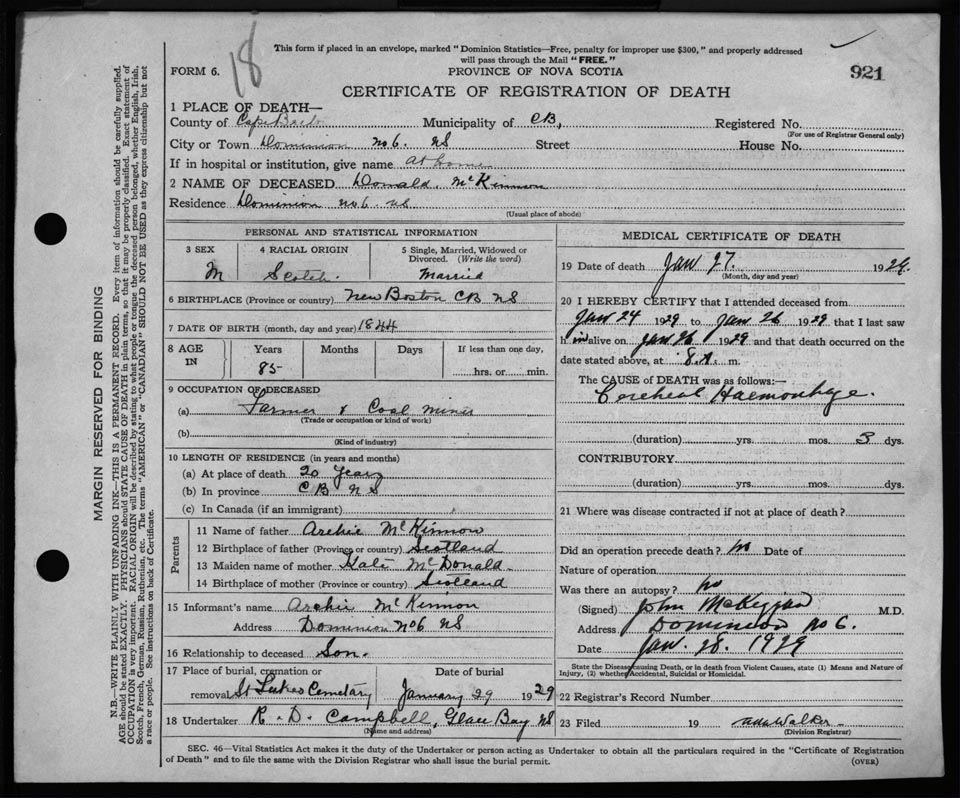 18
This form if placed in an envelope, marked "Dominion Statistics—Free, penalty for improper use $300," and properly addressed
will pass through the Mail "FREE."
FORM 6.
PROVINCE OF NOVA SCOTIA
921
CERTIFICATE OF REGISTRATION OF DEATH
1 PLACE OF DEATH—
County of Cape Breton Municipality of CB, Registered No.
(For use of Registrar General only)
City or Town Dominion No 6. NS Street House No.
If in hospital or institution, give name at home
2 NAME OF DECEASED Donald McKinnon
Residence Dominion No 6 NS
(Usual place of abode)
PERSONAL AND STATISTICAL INFORMATION
3 SEX 4 RACIAL ORIGIN 5 Single, Married, Widowed or Divorced. (Write the word)
M Scotch Married
6 BIRTHPLACE (Province or country) New Boston CB NS
7 DATE OF BIRTH (month, day and year) 1844
8 AGE IN Years Months Days If less than one day,
85 hrs. or min.
9 OCCUPATION OF DECEASED
(a) Farmer & Coal Miner
(Trade or occupation or kind of work)
(b)
(Kind of industry)
10 LENGTH OF RESIDENCE (in years and months)
(a) At place of death 20 Years
(b) In province CB NS
(c) In Canada (if an immigrant)
Parents
11 Name of father Archie McKinnon
12 Birthplace of father (Province or country) Scotland
13 Maiden name of mother Kate McDonald
14 Birthplace of mother (Province or country) Scotland
15 Informant's name Archie McKinnon
Address Dominion No 6 NS
16 Relationship to deceased Son.
17 Place of burial, cremation or Date of burial
removal St Lukes Cemetary January 29 1929
18 Undertaker R. D. Campbell, Glace Bay NS
(Name and address)
MEDICAL CERTIFICATE OF DEATH
19 Date of death Jan 27. 1929.
(Month, day and year)
20 I HEREBY CERTIFY that I attended deceased from
Jan 24 1929 to Jan 26 1929 that I last saw
him alive on Jan 26 1929 and that death occurred on the
date stated above, at 8.A. m.
The CAUSE OF DEATH was as follows:—
Cerebral Haemorrhage.
(duration) yrs. mos. 3 dys.
CONTRIBUTORY
(duration) yrs. mos. dys.
21 Where was disease contracted if not at place of death?
Did an operation precede death? No Date of
Nature of operation
Was there an autopsy? No
(Signed) John McKeggan M.D.
Address Dominion No 6.
Date Jan. 28. 1929
State the Disease causing Death, or in death from Violent Causes, state (1) Means and Nature of
Injury, (2) whether Accidental, Suicidal or Homicidal.
22 Registrar's Record Number
23 Filed 19 Walker
(Division Registrar)
SEC. 46—Vital Statistics Act makes it the duty of the Undertaker or person acting as Undertaker to obtain all the particulars required in the "Certificate of Registration
of Death" and to file the same with the Division Registrar who shall issue the burial permit.
(OVER)
MARGIN RESERVED FOR BINDING
N.B.—WRITE PLAINLY WITH UNFADING INK—THIS IS A PERMANENT RECORD. Every item of information should be carefully supplied.
AGE should be stated EXACTLY. PHYSICIANS should STATE CAUSE OF DEATH in plain terms, so that it may be properly classified. Exact statement of
OCCUPATION is very important. RACIAL ORIGIN will be described by stating to what people or tongue the deceased person belonged, whether English, Irish,
Scotch, French, German, Russian, Ruthenian, etc. The terms "AMERICAN" or "CANADIAN" SHOULD NOT BE USED as they express citizenship but not
a race or people. See instructions on back of Certificate.